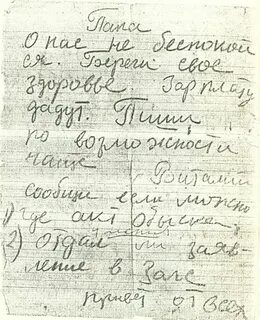 Папа
О нас не беспокой
ся. Береги свое
здоровье. Зарплату
дадут. Пиши
по возможности
чаще
Виталий
сообщи если можно
1) Где акт обыска
2) отдал ли заяв-
ление в Загс
привет от всех